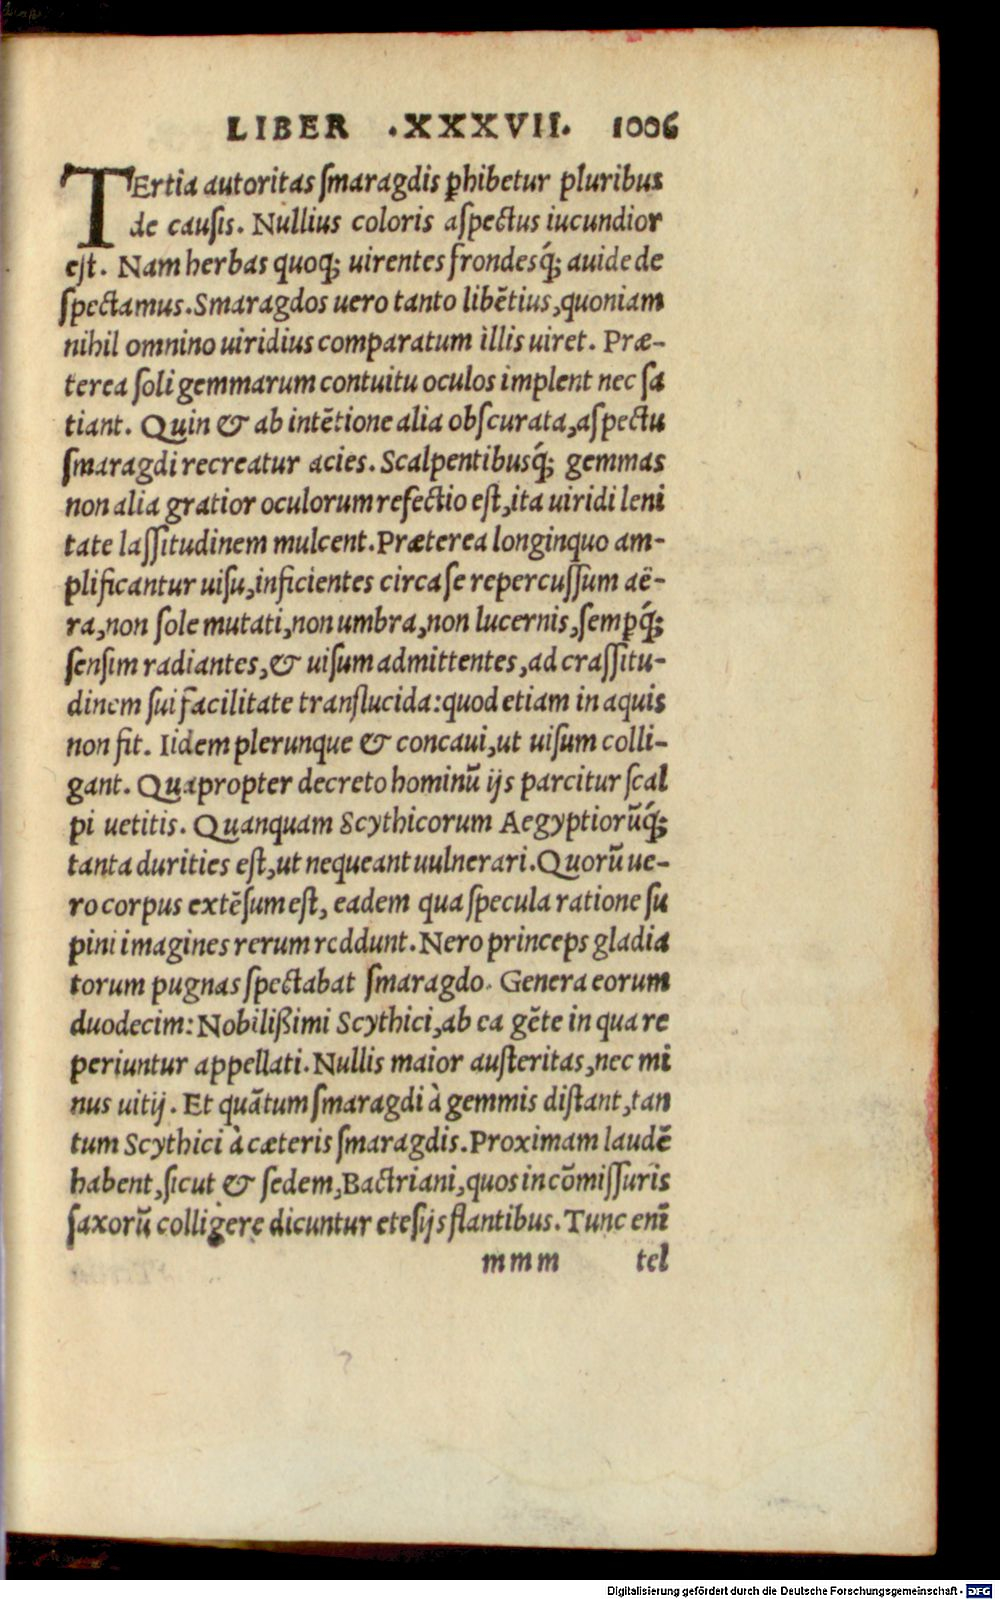 LIBER .XXXVII. 1006
TErtia autoritas ſmaragdis ꝑhibetur pluribus
de cauſis. Nullius coloris aſpectus iucundior
eſt. Nam herbas quoq; uirentes frondesq́; auide de
ſpectamus. Smaragdos uero tanto libētius, quoniam
nihil omnino uiridius comparatum illis uiret. Præ-
terea ſoli gemmarum contuitu oculos implent nec ſa
tiant. Quin & ab intētione alia obſcurata, aſpectu
ſmaragdi recreatur acies. Scalpentibusq́; gemmas
non alia gratior oculorum refectio eſt, ita uiridi leni
tate laſſitudinem mulcent. Præterea longinquo am-
plificantur uiſu, inficientes circa ſe repercuſſum aë-
ra, non ſole mutati, non umbra, non lucernis, ſemꝑq́;
ſenſim radiantes, & uiſum admittentes, ad craſſitu-
dinem ſui facilitate tranſlucida: quod etiam in aquis
non fit. Iidem plerunque & concaui, ut uiſum colli-
gant. Quapropter decreto hominū ijs parcitur ſcal
pi uetitis. Quanquam Scythicorum Aegyptiorūq́;
tanta durities eſt, ut nequeant uulnerari. Quorū ue-
ro corpus extēſum eſt, eadem qua ſpecula ratione ſu
pini imagines rerum reddunt. Nero princeps gladia
torum pugnas ſpectabat ſmaragdo. Genera eorum
duodecim: Nobilißimi Scythici, ab ea gēte in qua re
periuntur appellati. Nullis maior auſteritas, nec mi
nus uitij. Et quātum ſmaragdi à gemmis diſtant, tan
tum Scythici à cæteris ſmaragdis. Proximam laudē
habent, ſicut & ſedem, Bactriani, quos in cōmiſſuris
ſaxorū colligere dicuntur eteſijs flantibus. Tunc enī
mmm tel
Digitalisierung gefördert durch die Deutsche Forschungsgemeinschaft - DFG